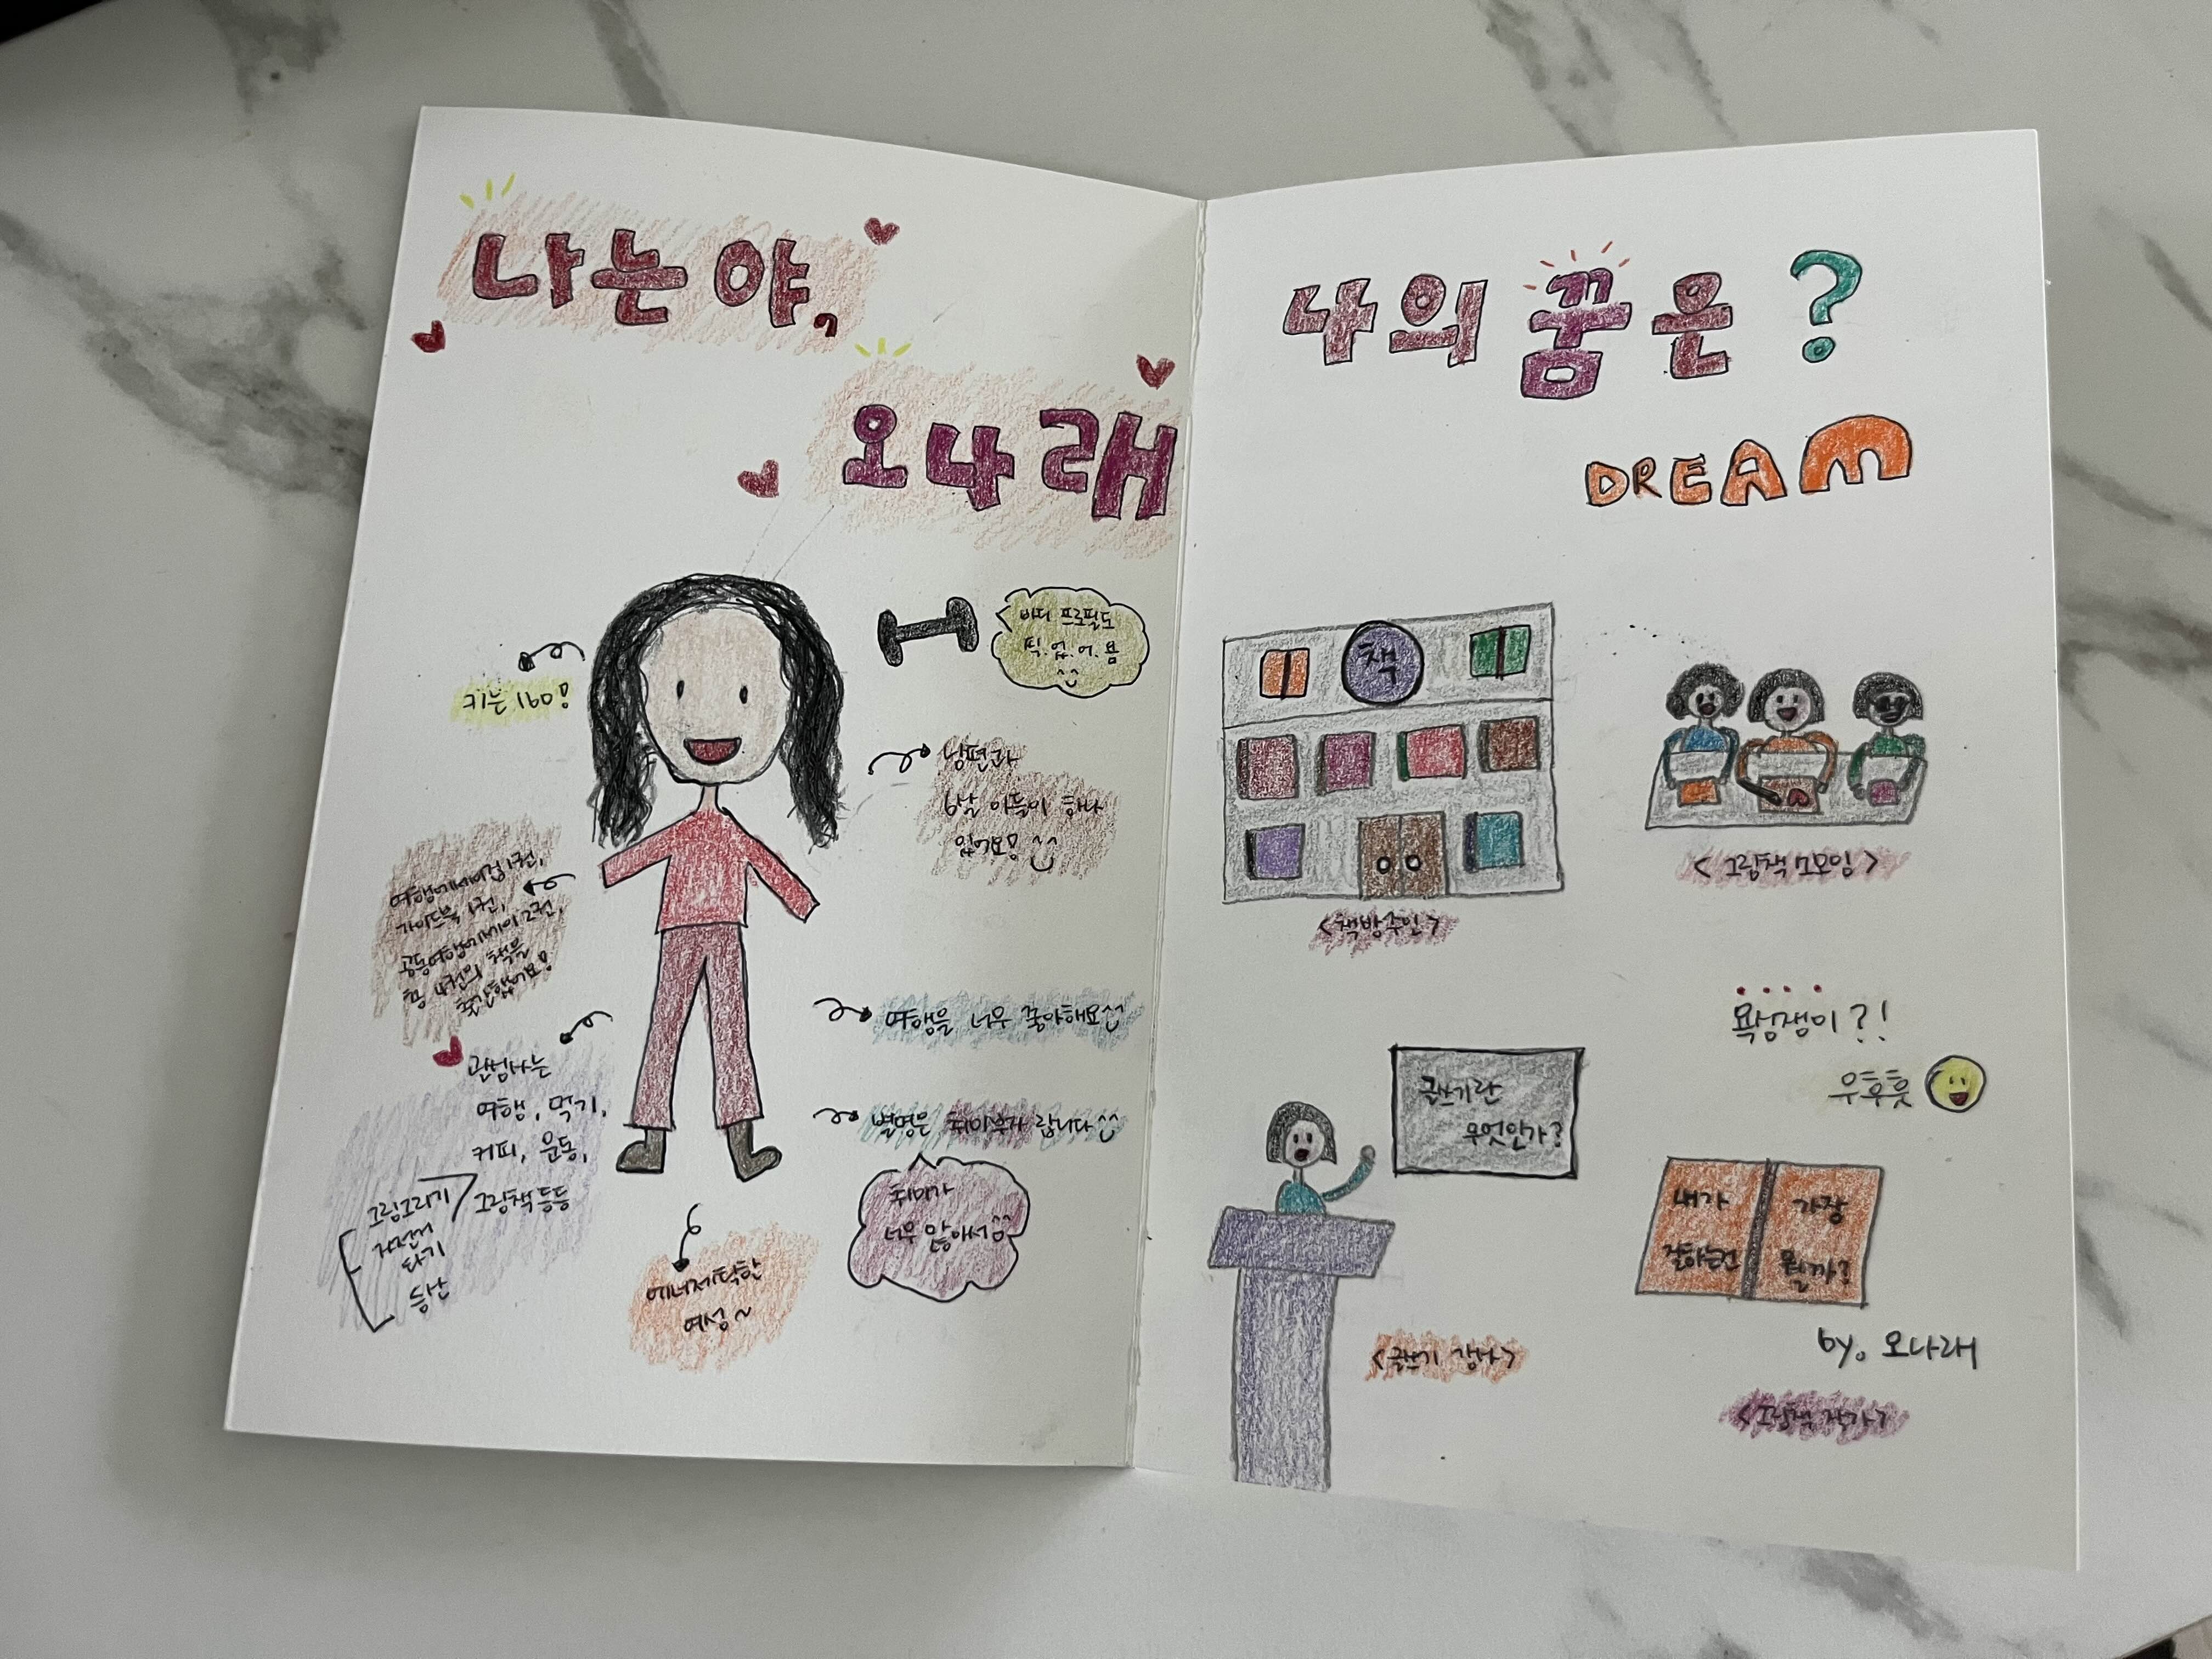 나는야,
오나래
키는 160!
바디 프로필도
찍.었.어.욤
남편과
6살 아들이 하나
있어요!
여행에세이집 1권,
가이드북 1권,
공동여행에세이 2권,
총 4권의 책을
출간했어요!
관심사는
여행, 먹기,
커피, 운동,
그림책 등등
그림그리기
자전거
타기
등산
여행을 너무 좋아해요
별명은 취미부자 랍니다^^
취미가
너무 많아서
에너제틱한
여성~
나의 꿈은?
DREAM
책
<책방주인>
<그림책 모임>
욕심쟁이?!
우후훗
글쓰기란
무엇인가?
<글쓰기 강사>
내가
잘하는건
가장
뭘까?
by. 오나래
<그림책 작가>